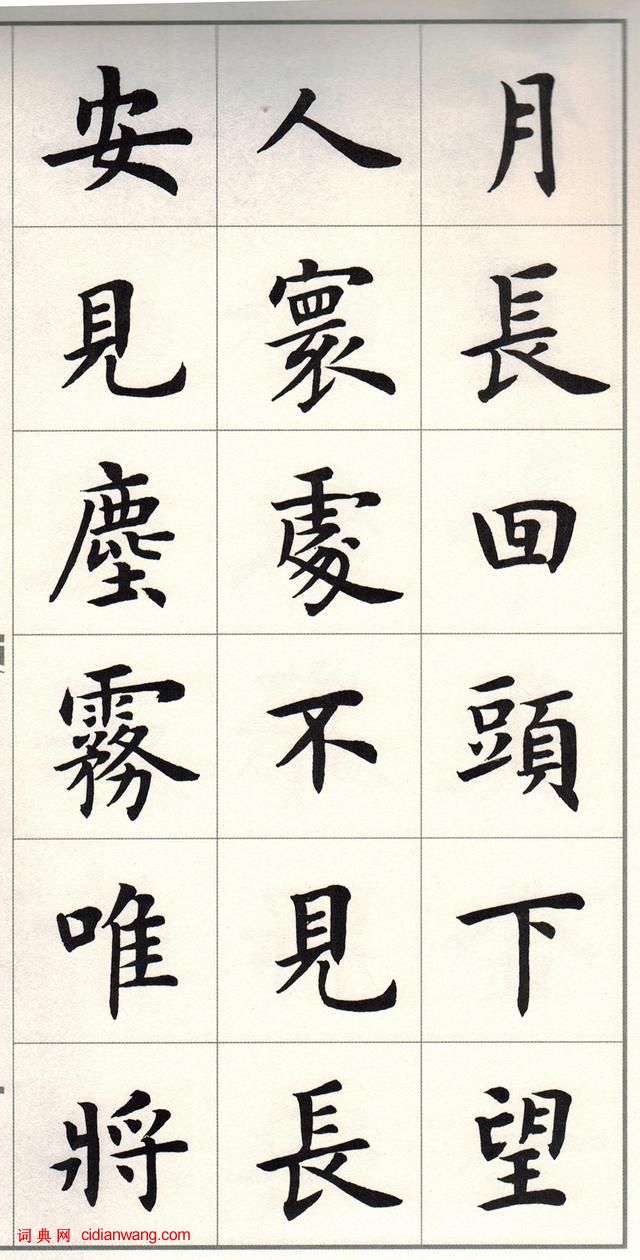 月長回頭下望
人寰處不見長
安見塵霧唯將
词典网 cidianwang.com